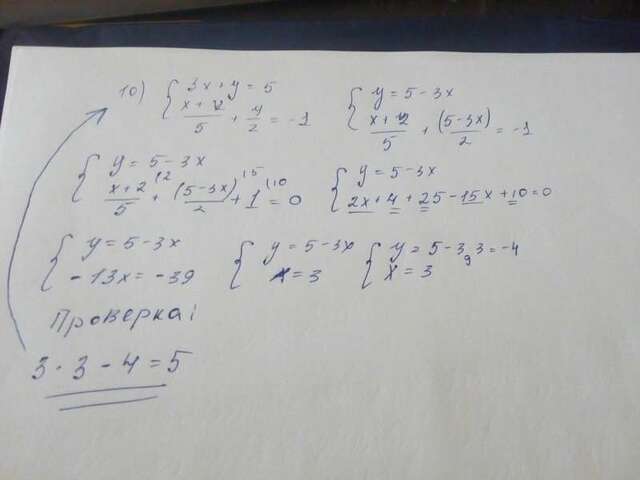 10) { 3x + y = 5
(x+2)/5 + y/2 = -1
{ y = 5 - 3x
(x+2)/5 + (5-3x)/2 = -1
{ y = 5 - 3x
(x+2)/5 (2 + (5-3x)/2 (5 + 1 (10 = 0
{ y = 5 - 3x
2x + 4 + 25 - 15x + 10 = 0
{ y = 5 - 3x
-13x = -39
{ y = 5 - 3x
x = 3
{ y = 5 - 3 · 3 = -4
x = 3
Проверка:
3 · 3 - 4 = 5